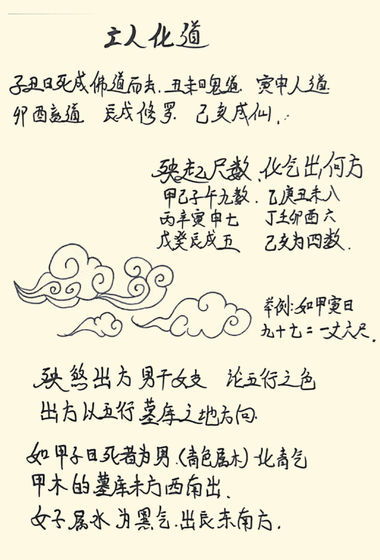 亡人化道
子丑日死成佛道而去.丑未日鬼道 寅申人道
卯酉畜道 辰戌修罗 己亥成仙.
殃起尺数、化气出何方
甲己子午九数 乙庚丑未八
丙辛寅申七 丁壬卯酉六
戊癸辰戌五 己亥为四数.
举例:如甲寅日
九十七=一丈六尺.
殃煞出方 男干女支 论五行之色
出方以五行墓库之地方向
如甲子日死者为男.(青色属木)化青气
甲木的墓库未方西南出.
女子属水为黑气.出辰东南方.